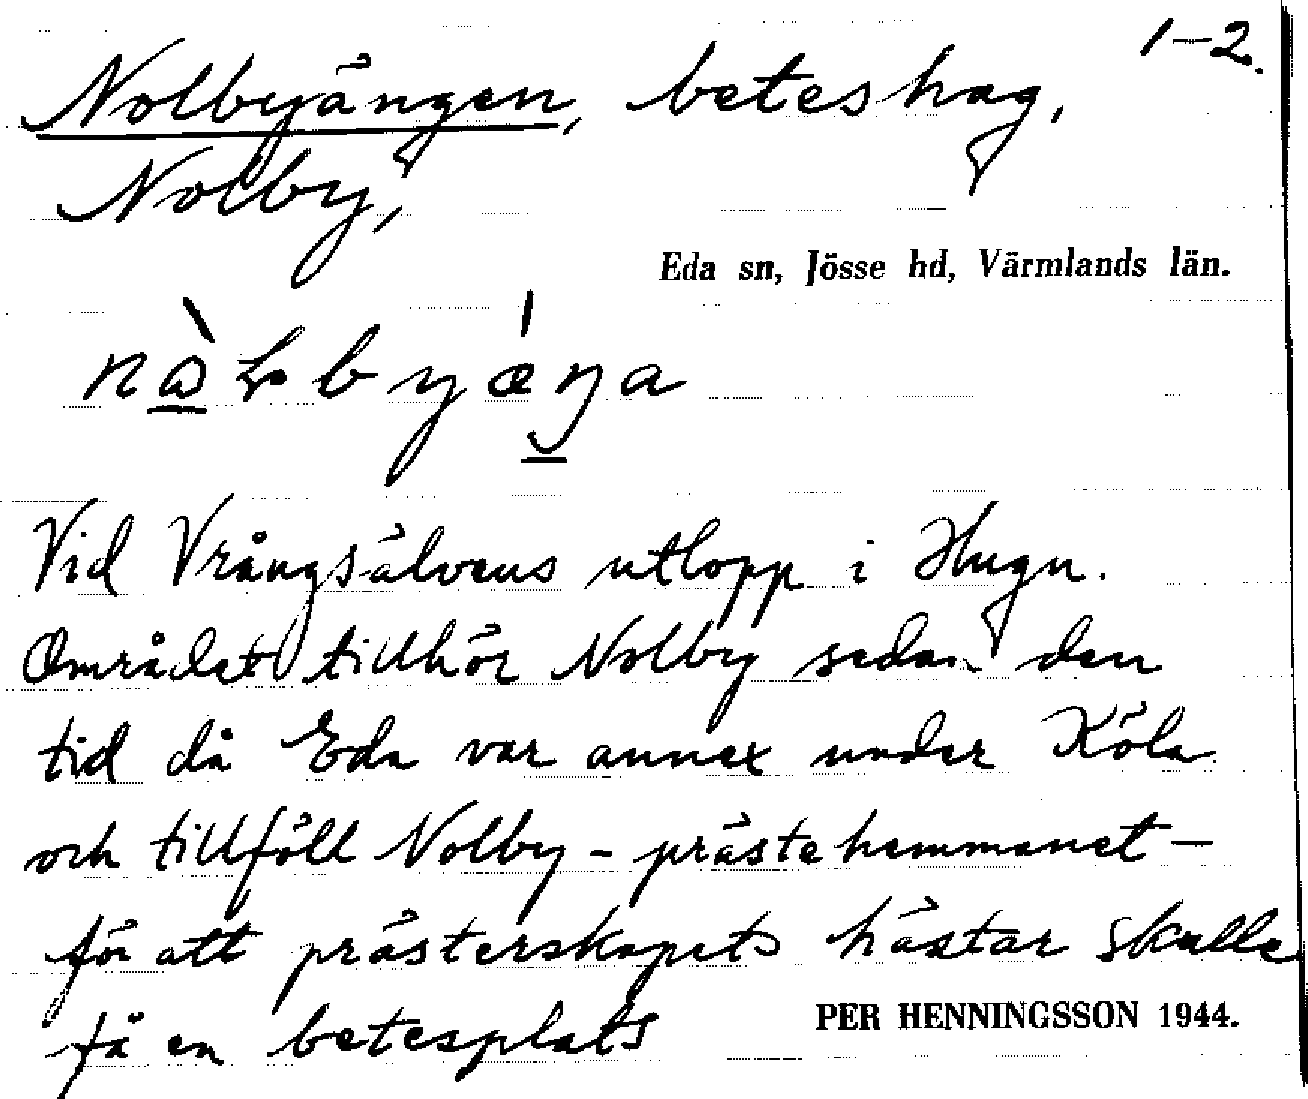 1-2.
Nolbyängen, beteshag,
Nolby,
Eda sn, Jösse hd, Värmlands län.
Vid Vrångsälvens utlopp i Hugn.
Området tillhör Nolby sedan den
tid då Eda var annex under Köla
och tillföll Nolby - prästehemmanet -
för att prästerskapets hästar skulle
få en betesplats
PER HENNINGSSON 1944.